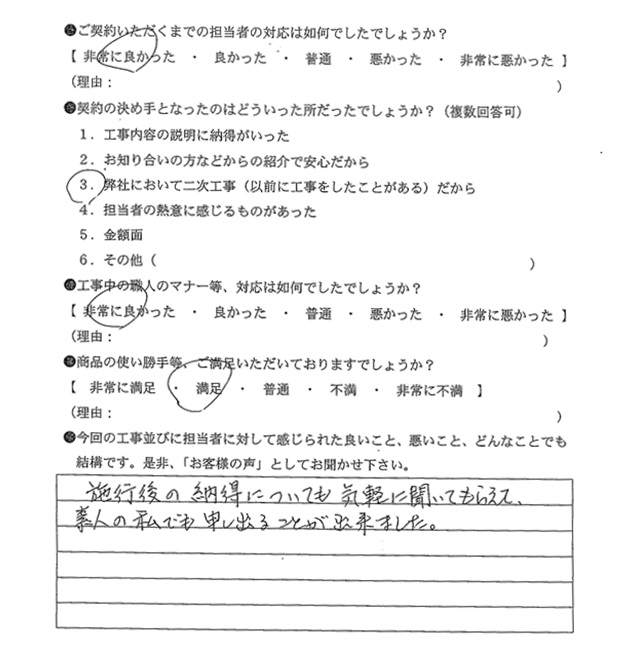 ●ご契約いただくまでの担当者の対応は如何でしたでしょうか？
【 非常に良かった ・ 良かった ・ 普通 ・ 悪かった ・ 非常に悪かった 】
（理由： ）
●契約の決め手となったのはどういった所だったでしょうか？（複数回答可）
1．工事内容の説明に納得がいった
2．お知り合いの方などからの紹介で安心だから
3．弊社において二次工事（以前に工事をしたことがある）だから
4．担当者の熱意に感じるものがあった
5．金額面
6．その他（ ）
●工事中の職人のマナー等、対応は如何でしたでしょうか？
【 非常に良かった ・ 良かった ・ 普通 ・ 悪かった ・ 非常に悪かった 】
（理由： ）
●商品の使い勝手等、ご満足いただいておりますでしょうか？
【 非常に満足 ・ 満足 ・ 普通 ・ 不満 ・ 非常に不満 】
（理由： ）
●今回の工事並びに担当者に対して感じられた良いこと、悪いこと、どんなことでも
結構です。是非、「お客様の声」としてお聞かせ下さい。
施行後の納得についても気軽に聞いてもらえて、
素人の私でも申し出ることが出来ました。